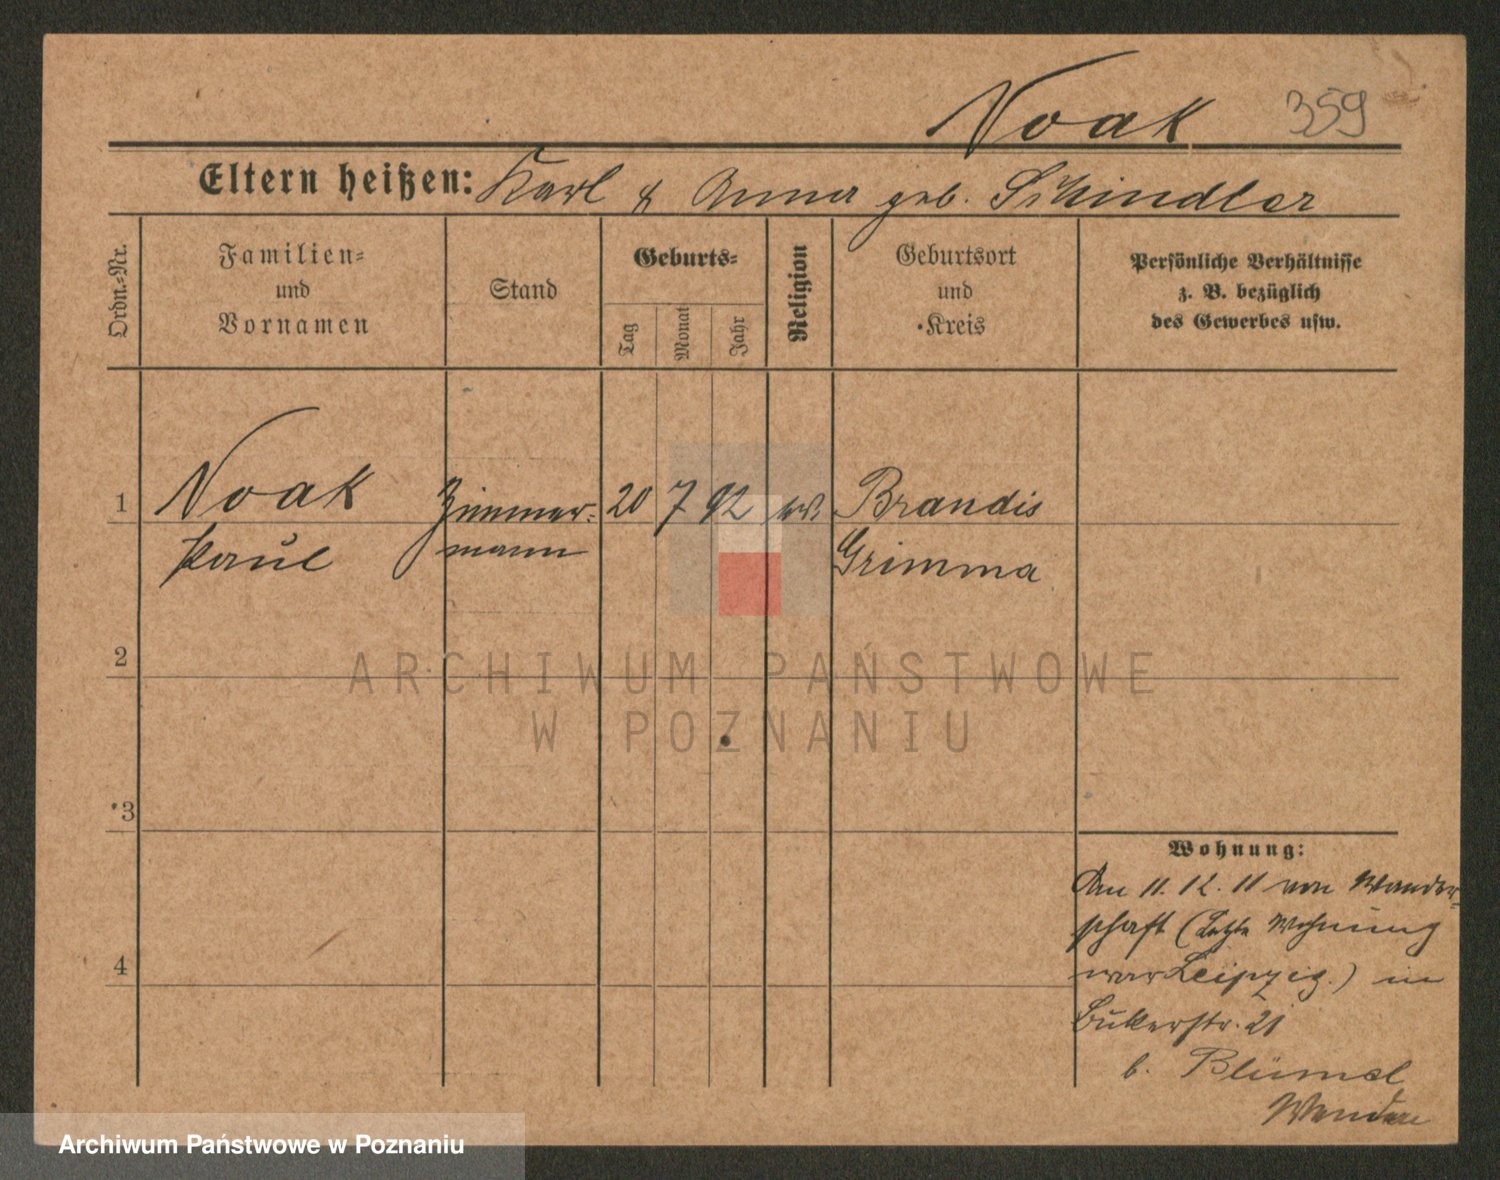 Noak 359
Eltern heißen: Karl & Anna geb. Schindler
Ordn.-Nr.
Familien-
und
Vornamen
Stand
Geburts-
Tag
Monat
Jahr
Religion
Geburtsort
und
Kreis
Persönliche Verhältnisse
z. B. bezüglich
des Gewerbes usw.
1 Noak Zimmer- 20 7 92 ev. Brandis
Paul mann Grimma
2
3
4
Wohnung:
Am 11.12.11 von Wander-
schaft (letzte Wohnung
war Leipzig.) in
Bukerstr. 21
b. Blümel
ARCHIWUM PAŃSTWOWE
W POZNANIU
Archiwum Państwowe w Poznaniu